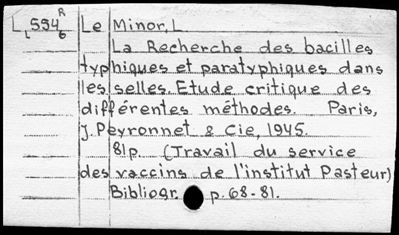 R
L 554 Le Minor, L
L 6
La Recherche des bacilles
typhiques et paratyphiques dans
les selles. Etude critique des
différentes méthodes. Paris,
J. Peyronnet & Cie, 1945.
81p. (Travail du service
des vaccins de l'institut Pasteur)
Bibliogr. p. 68-81.